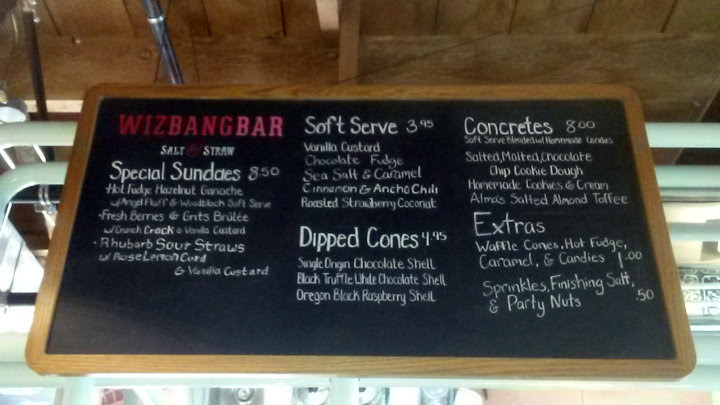 WIZBANGBAR
SALT & STRAW
Special Sundaes 8.50
• Hot Fudge Hazelnut Ganache
w/ Angel Fluff & Woodblock Soft Serve
• Fresh Berries & Grits Brûlée
w/ Crunch Crack & Vanilla Custard
• Rhubarb Sour Straws
w/ Rose Lemon Curd
& Vanilla Custard
Soft Serve 3.95
Vanilla Custard
Chocolate Fudge
Sea Salt & Caramel
Cinnamon & Ancho Chili
Roasted Strawberry Coconut
Dipped Cones 4.95
Single Origin Chocolate Shell
Black Truffle White Chocolate Shell
Oregon Black Raspberry Shell
Concretes 8.00
Soft Serve Blended w/ Homemade Candies
Salted, Malted, Chocolate
Chip Cookie Dough
Homemade Cookies & Cream
Alma's Salted Almond Toffee
Extras
Waffle Cones, Hot Fudge,
Caramel, & Candies 1.00
Sprinkles, Finishing Salt,
& Party Nuts .50